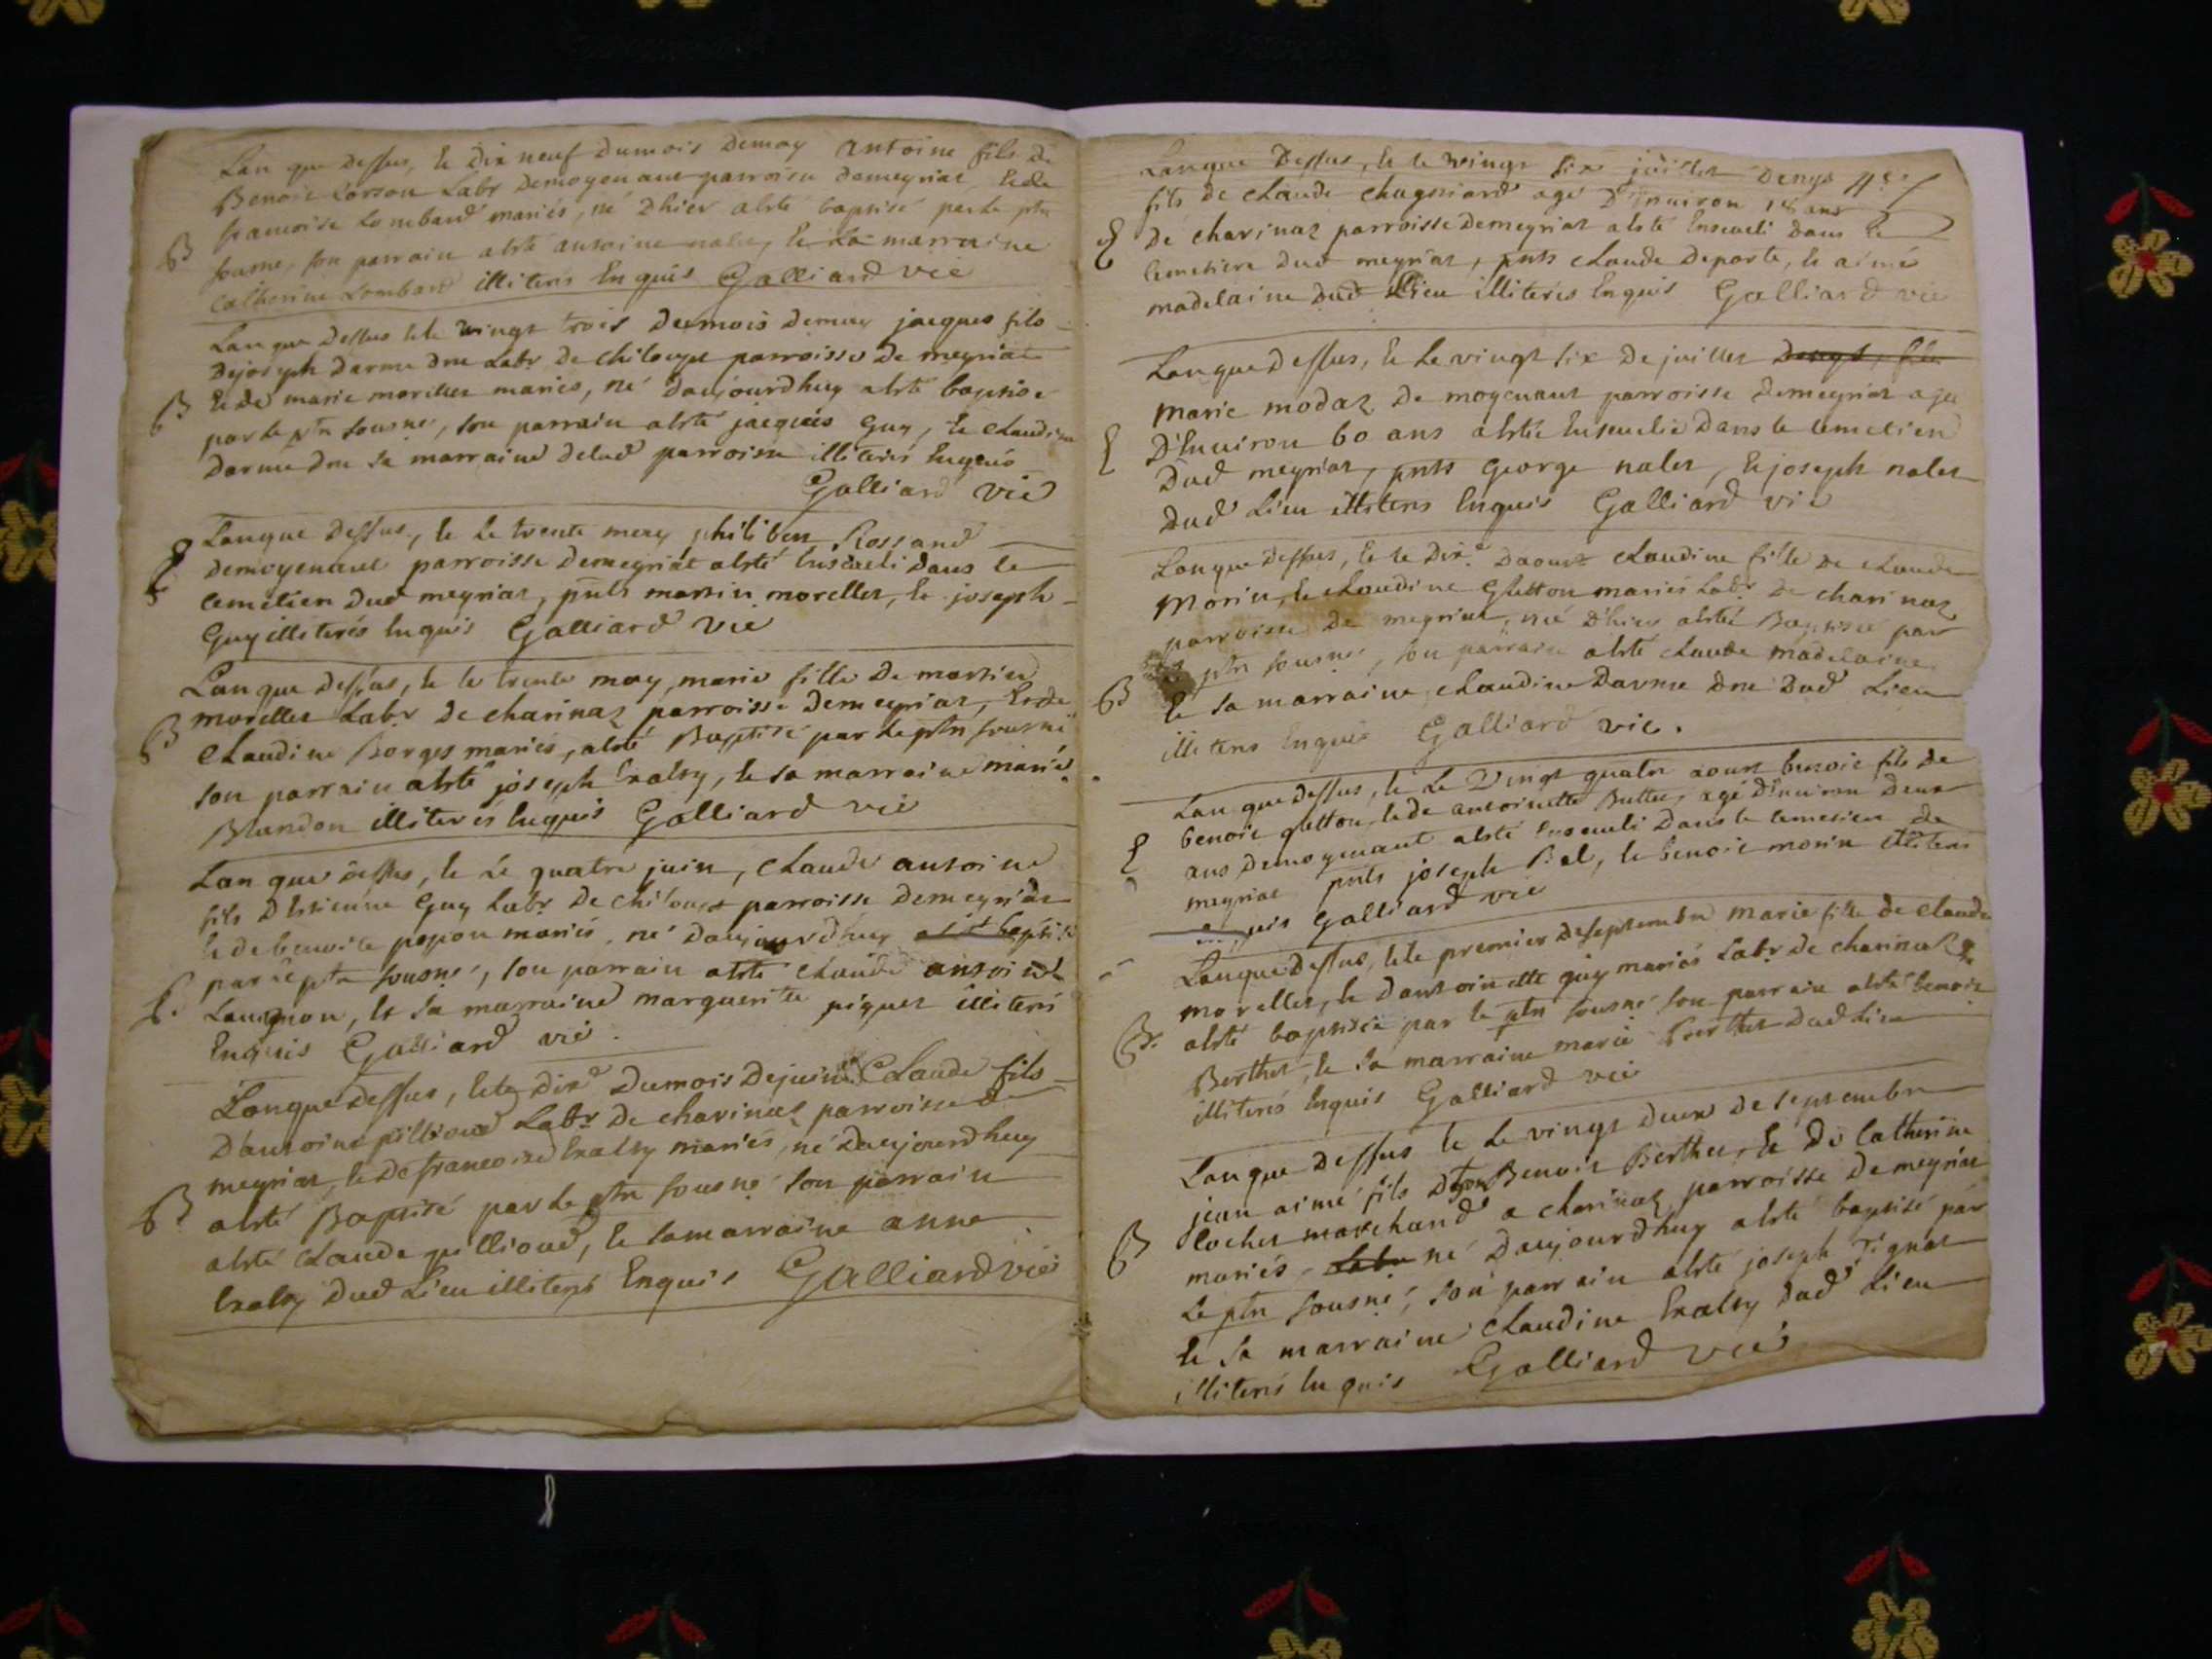 Lan que dessus, le dix neuf dumois demay antoine fils de
Benoit Corson Labr demoyenant parroisse demeyriat, & de
francoise Lombard mariés, né d'hier aésté baptisé par le ptre
sousné, son parrain aésté antoine nalet, & La marraine
Catherine Lombard illiterés Enquis Galliard vié
B
Lan que dessus & le vingt trois dumois demay jacques fils
dejoseph darme dne Labr de chiloup parroisse de meyriat
& de marie morellet mariés, né daujourdhuy aésté baptisé
B
par le ptre sousné, son parrain aésté jacques Guy, & claudine
darme dne sa marraine delad parroisse illiterés Enquis
Galliard vié
Lanque dessus, & Le trente may philibert Rossand
E
demoyenant parroisse demeyriat aésté Enseveli dans le
cemetiere dud meyriat, pnts martin morellet, & joseph
Guy illiterés Enquis Galliard vié
Lan que dessus, & le trente may, marie fille de martin
morellet Labr de charinaz parroisse demeyriat, & de
B
claudine Borges mariés, aésté Baptisé par le ptre sousné
son parrain aésté joseph Eralty, & sa marraine marie
Blandon illiterés Enquis Galliard vié
Lan que dessus, & Le quatre juin, claude antoine
fils d'Estienne Guy Labr de chiloup parroisse demeyriat
& de benoite popon mariés, né daujourdhuy aésté baptisé
B.
par le ptre sousné, son parrain aésté claude antoine
Laugnon, & sa marraine marguerite piquet illiterés
Enquis Galliard vié.
Lanque dessus, & le dixe dumois dejuin Claude fils
d'antoine pillioud Labr de charinaz parroisse de
meyriat, & de francoise Eralty mariés, né daujourdhuy
B
aésté Baptisé par le ptre sousné son parrain
aésté claude pillioud, & samarraine anne
Eralty dud Lieu illiterés Enquis Galliard vié
Lanque dessus, & le vingt six juillet denys
fils de claude chagniard agé d'Environ 18 ans
E
de charinaz parroisse demeyriat aésté Enseveli dans le
cemetiere dud meyriat, pnts claude deporte, & aimé
madelaine dud Lieu illiterés Enquis Galliard vié
Lanque dessus, & Le vingt six de juillet denys, fils
marie modaz de moyenant parroisse demeyriat agée
E
d'Environ 60 ans aésté Ensevelie dans le cemetiere
dud meyriat, pnts George nalet, & joseph nalet
dud Lieu illiterés Enquis Galliard vié
Lanque dessus, & le dixe daoust claudine fille de claude
morin, & claudine Gletton mariés Labr de charinaz
parroisse de meyriat, née d'hier aésté Baptisée par
le ptre sousné, son parrain aésté claude madelaine
B
& sa marraine claudine darme dne dud Lieu
illiterés Enquis Galliard vié.
Lan que dessus, & Le vingt quatre aoust benoit fils de
benoit gletton, & de antoinette Buttet, agé d'Environ deux
E
ans demoyenant aésté Enseveli dans le cemetiere de
meyriat pnts joseph Bal, & benoit morin illiterés
Enquis Galliard vié
Lanque dessus, & le premier deseptembre marie fille de claude
morellet, & dantoinette guy mariés Labr de charinaz
B.
aésté baptisée par le ptre sousné son parrain aésté benoit
Berthet, & sa marraine marie Berthet dud Lieu
illiterés Enquis Galliard vié
Lanque dessus & Le vingt deux de septembre
jean aimé fils de Benoit Berthet, & de Catherine
cochet marchand a charinaz parroisse demeyriat
B
mariés, Labr né daujourdhuy aésté baptisé par
Le ptre sousné, son parrain aésté joseph Tignat
& sa marraine claudine Eralty dud Lieu
illiterés Enquis Galliard vié